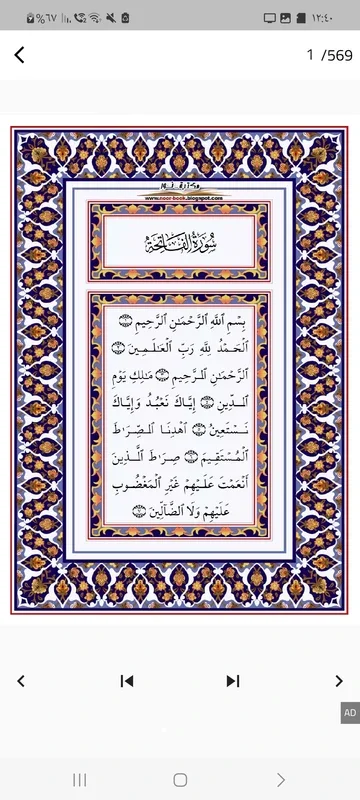 %٦٧ ١٢:٤٠
1 /569
www.noor-book.blogspot.com
سُورَةُ الفَاتِحَةِ
بِسْمِ ٱللَّهِ ٱلرَّحْمَٰنِ ٱلرَّحِيمِ ۝١
ٱلْحَمْدُ لِلَّهِ رَبِّ ٱلْعَٰلَمِينَ ۝٢
ٱلرَّحْمَٰنِ ٱلرَّحِيمِ ۝٣ مَٰلِكِ يَوْمِ
ٱلدِّينِ ۝٤ إِيَّاكَ نَعْبُدُ وَإِيَّاكَ
نَسْتَعِينُ ۝٥ ٱهْدِنَا ٱلصِّرَٰطَ
ٱلْمُسْتَقِيمَ ۝٦ صِرَٰطَ ٱلَّذِينَ
أَنْعَمْتَ عَلَيْهِمْ غَيْرِ ٱلْمَغْضُوبِ
عَلَيْهِمْ وَلَا ٱلضَّآلِّينَ ۝٧
AD